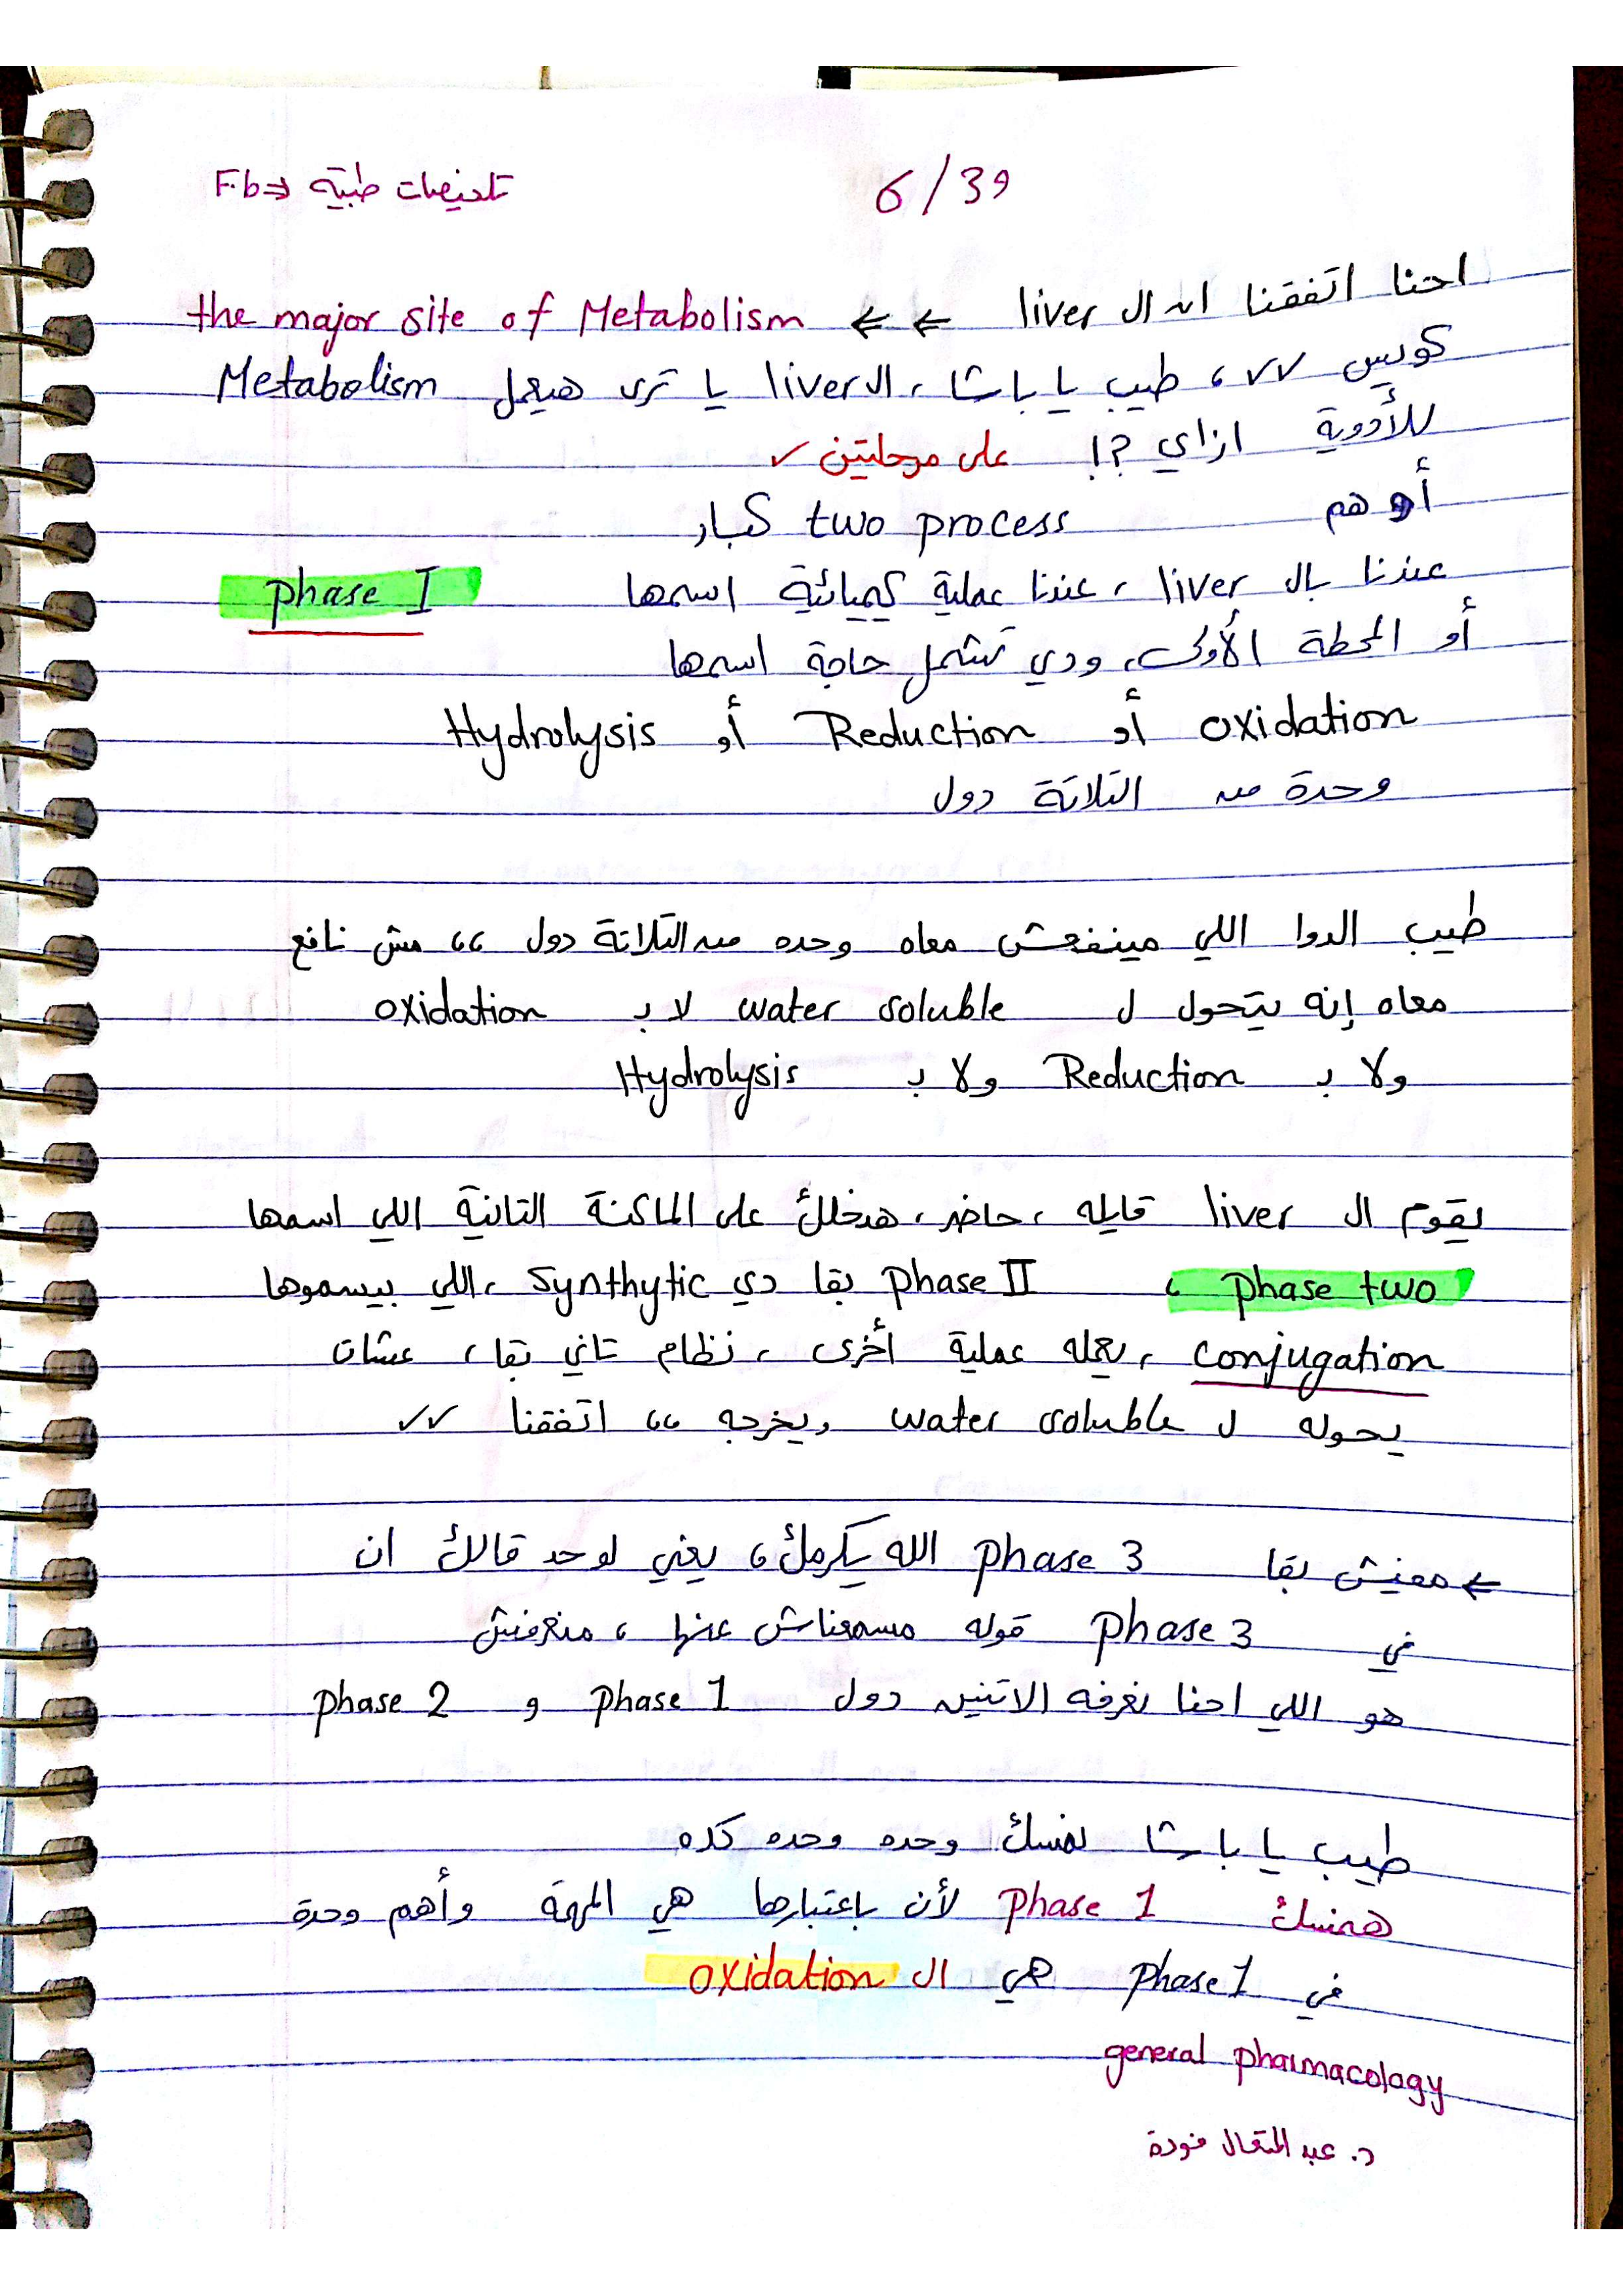 تلخيصات طبية <= F.b
6/39
احنا اتفقنا ان ال liver <= <= the major site of Metabolism
كويس ✓✓، طيب يا باشا، ال liver يا ترى هيعمل Metabolism
للأدوية ازاي ؟! على مرحلتين ✓
أو هم two process كبار
عندنا بال liver، عندنا عملية كميائية اسمها phase I
أو المحطة الأولى، ودي تشمل حاجة اسمها
oxidation أو Reduction أو Hydrolysis
وحدة من التلاتة دول
طيب الدوا اللي مينفعش معاه وحده من التلاتة دول ،، مش نافع
معاه إنه يتحول ل water soluble لا ب oxidation
ولا ب Reduction ولا ب Hydrolysis
يقوم ال liver قايله، حاضر، هدخلك على الماكنة التانية اللي اسمها
phase two، phase II بقا دي synthytic، اللي بيسموها
conjugation، يعمله عملية أخرى، نظام تاني بقا، عشان
يحوله ل water soluble ويخرجه ،، اتفقنا ✓✓
<= معنيش بقا phase 3 الله يكرمك، يعني لو حد قالك ان
في phase 3 قوله مسمعناش عنها، منعرفش
هو اللي احنا نعرفه الاتنين دول phase 1 و phase 2
طيب يا باشا نمسك وحده وحده كده
همسك phase 1 لأن باعتبارها هي المهمة وأهم وحدة
في phase 1 هي ال oxidation
general pharmacology
د. عبد المتعال فودة